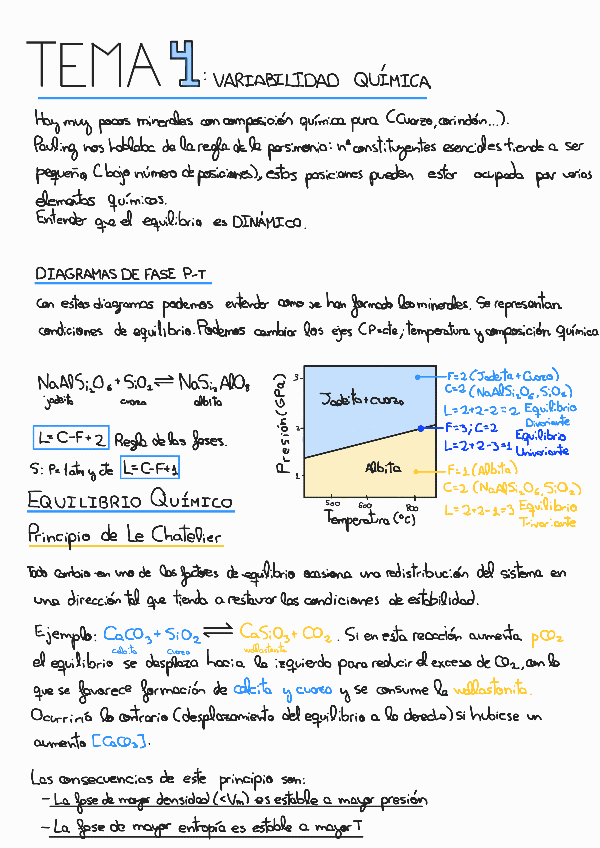 TEMA 4: VARIABILIDAD QUÍMICA
Hay muy pocos minerales con composición química pura (Cuarzo, corindón...).
Pauling nos hablaba de la regla de la parsimonia: nº constituyentes esenciales tiende a ser
pequeño (bajo número de posiciones), estas posiciones pueden estar ocupada por varios
elementos químicos.
Entender que el equilibrio es DINÁMICO.
DIAGRAMAS DE FASE P-T
Con estos diagramas podemos entender como se han formado los minerales. Se representan
condiciones de equilibrio. Podemos cambiar los ejes (P=cte; temperatura y composición química
NaAlSi₂O₆ + SiO₂ ⇌ NaSi₃AlO₈
jadeita cuarzo albita
L=C-F+2 Regla de las fases.
Si P= 1atm y cte L=C-F+1
Presión (GPa)
3
2
1
Jadeita + cuarzo
Albita
500 600 800
Temperatura (°C)
F=2 (Jadeita + Cuarzo)
C=2 (NaAlSi₂O₆, SiO₂)
L=2+2-2=2 Equilibrio
Divariante
F=3; C=2 Equilibrio
L=2+2-3=1 Univariante
F=1 (Albita)
C=2 (NaAlSi₂O₆, SiO₂)
L=2+2-1=3 Equilibrio
Trivariante
EQUILIBRIO QUÍMICO
Principio de Le Chatelier
Todo cambio en uno de los factores de equilibrio ocasiona una redistribución del sistema en
una dirección tal que tienda a restaurar las condiciones de estabilidad.
Ejemplo: CaCO₃ + SiO₂ ⇌ CaSiO₃ + CO₂. Si en esta reacción aumenta pCO₂
calcita cuarzo wollastonita
el equilibrio se desplaza hacia la izquierda para reducir el exceso de CO₂, con lo
que se favorece formación de calcita y cuarzo y se consume la wollastonita.
Ocurriría lo contrario (desplazamiento del equilibrio a la derecha) si hubiese un
aumento [CaCO₃].
Las consecuencias de este principio son:
- La fase de mayor densidad (<Vm) es estable a mayor presión
- La fase de mayor entropía es estable a mayor T